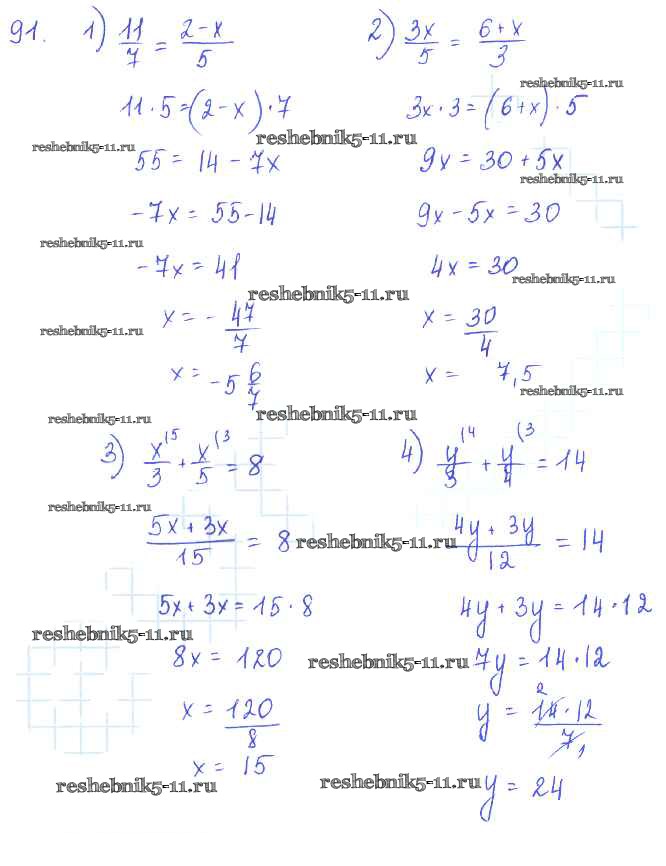 91. 1) 11/7 = 2-x/5
11·5=(2-x)·7
reshebnik5-11.ru
reshebnik5-11.ru
55 = 14 - 7x
-7x = 55-14
reshebnik5-11.ru
-7x = 41
reshebnik5-11.ru
x = - 47/7
reshebnik5-11.ru
x = -5 6/7
reshebnik5-11.ru
reshebnik5-11.ru
2) 3x/5 = 6+x/3
reshebnik5-11.ru
3x·3=(6+x)·5
9x = 30 + 5x
reshebnik5-11.ru
9x - 5x = 30
4x = 30
reshebnik5-11.ru
x = 30/4
x = 7,5
reshebnik5-11.ru
3) x(5/3 + x(3/5 = 8
reshebnik5-11.ru
5x + 3x/15 = 8
reshebnik5-11.ru
5x + 3x = 15·8
reshebnik5-11.ru
8x = 120
reshebnik5-11.ru
x = 120/8
x = 15
reshebnik5-11.ru
4) y(4/3 + y(3/4 = 14
4y + 3y/12 = 14
4y + 3y = 14·12
7y = 14·12
y = 2 14·12/7 1
reshebnik5-11.ru
y = 24